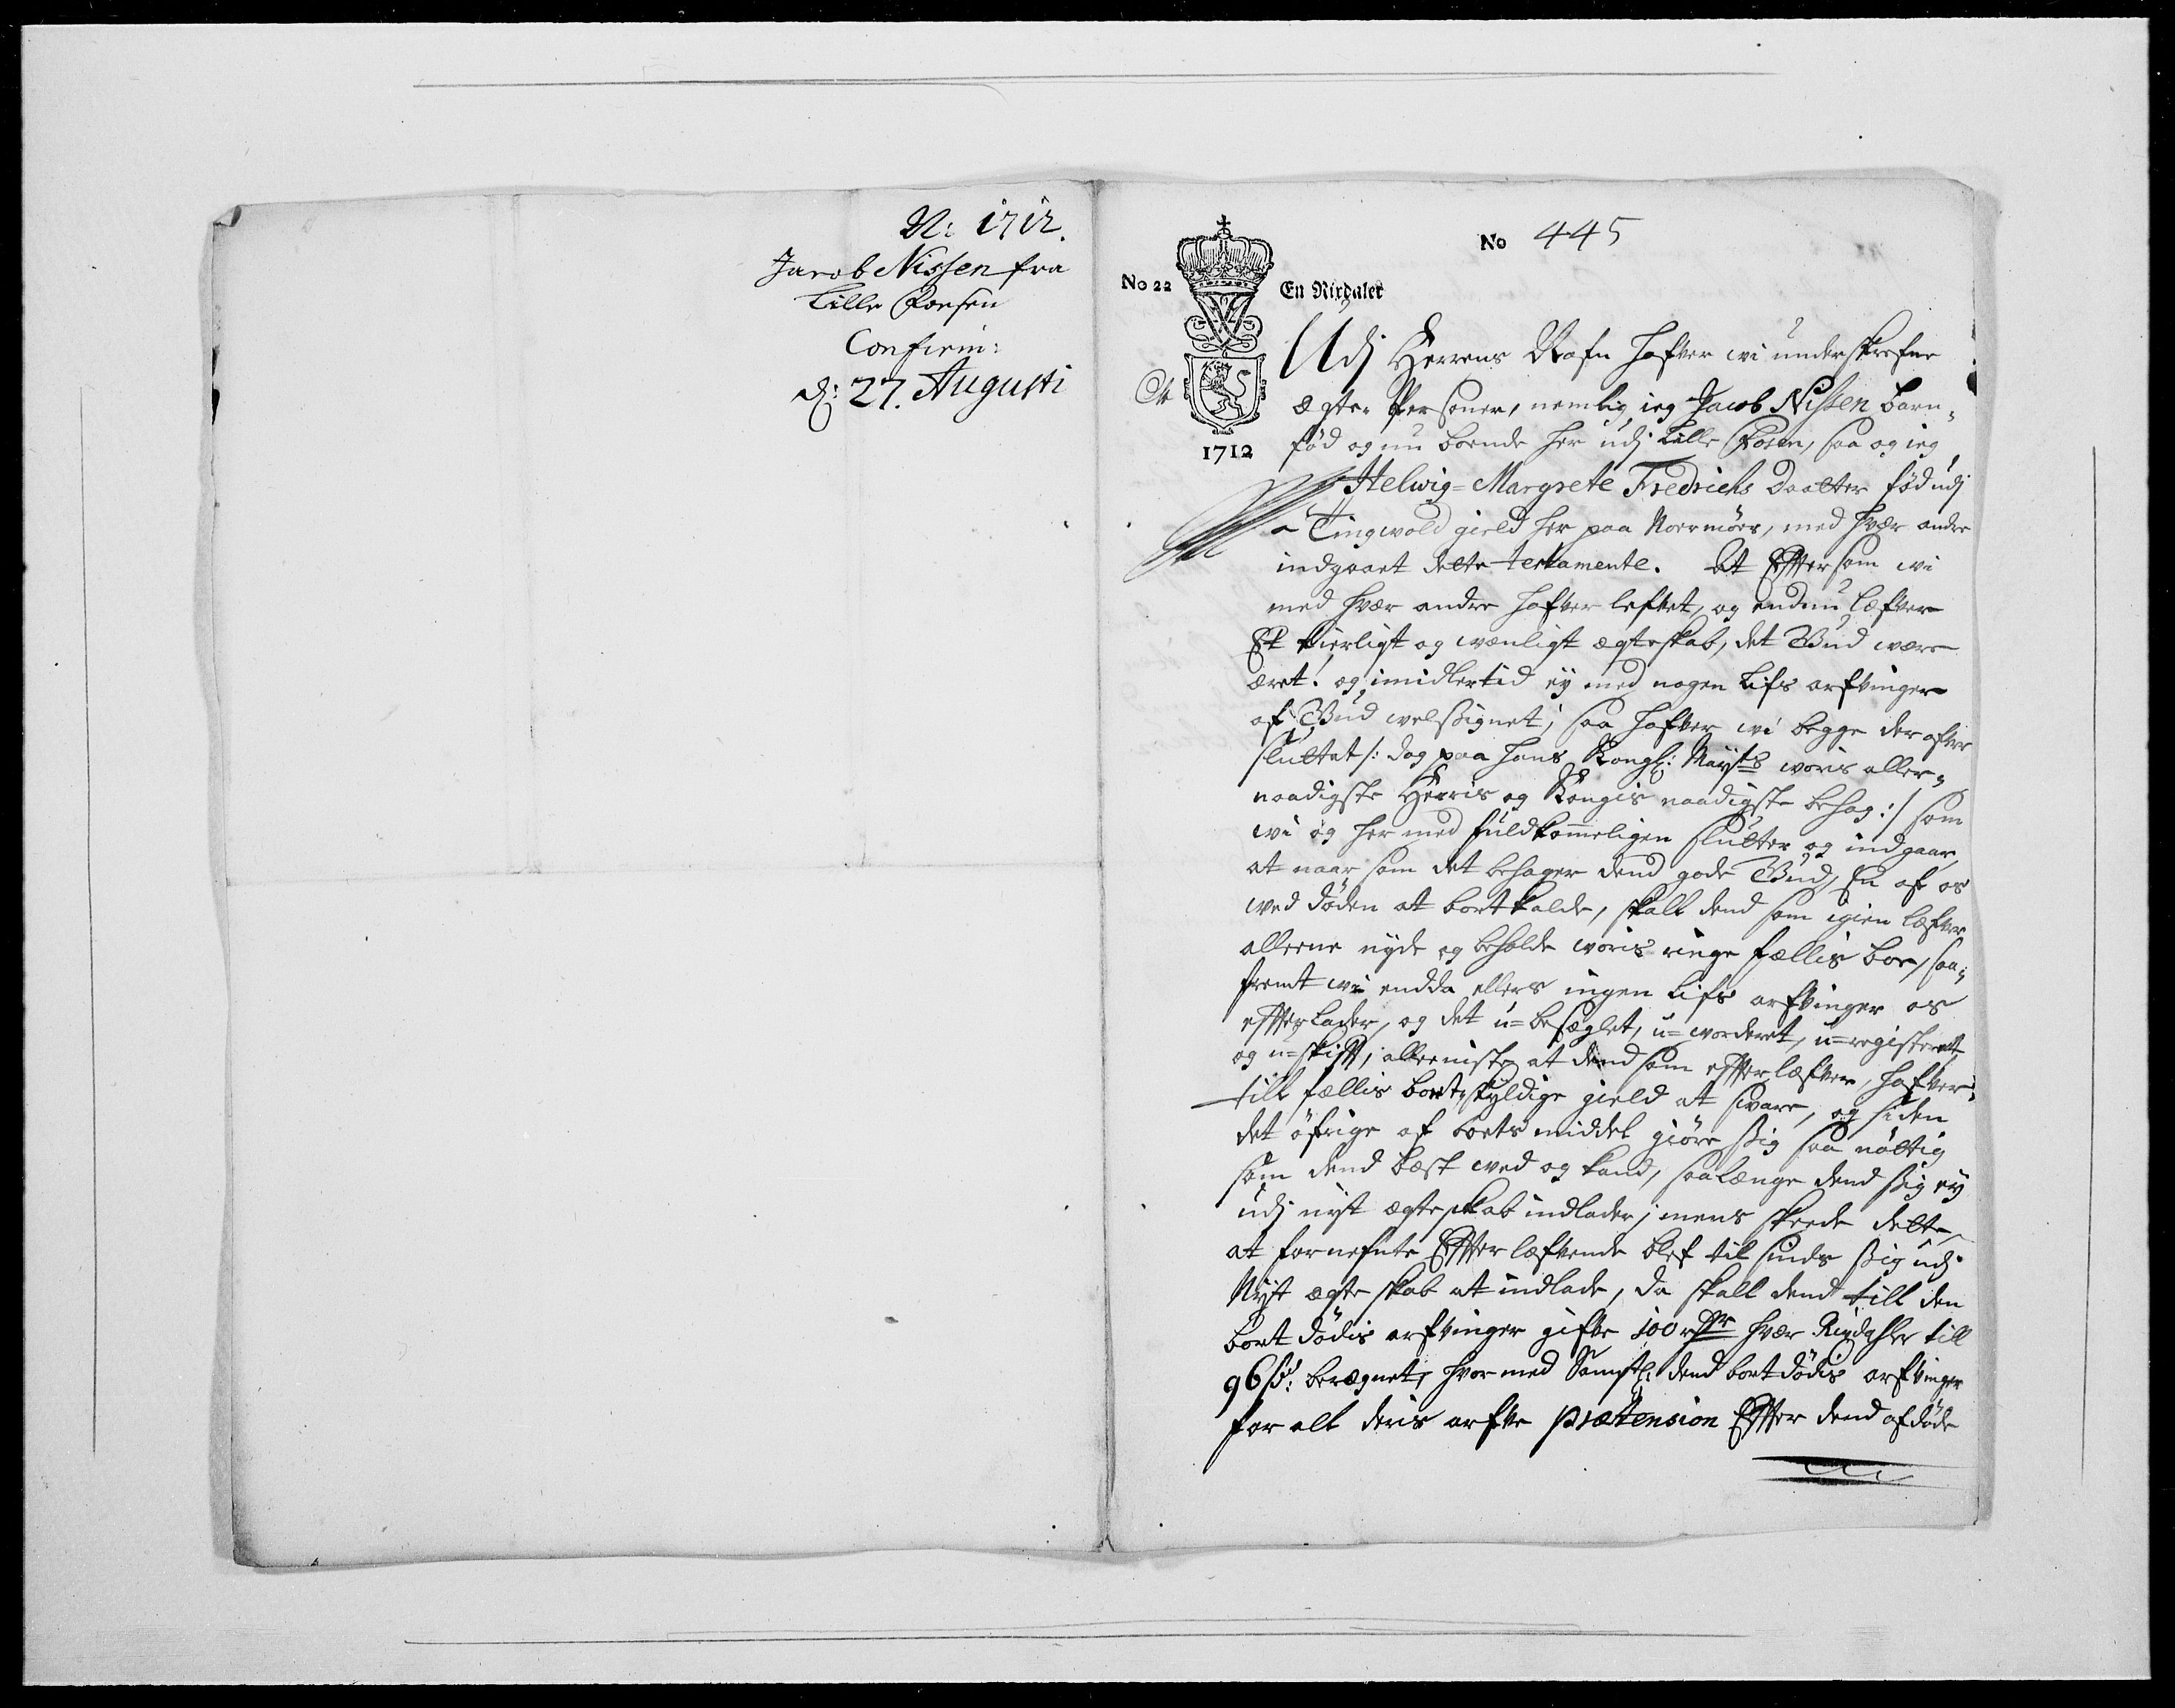 N: 1712.
Jacob Nissen fra
Lille Fosen
Confirm:
d: 27. Augusti
No 445
No 22
En Rixdaler
1712
Udj Herrens Nafn hafver wi underskrefne
ægte Personer, nemlig ieg Jacob Nissen barn-
fød og nu boende her udj Lille Fosen, saa og ieg
Helwig=Margrete Fredrichs Daatter fød udj
Tingwold gield her paa Noermöer, med hver andre
indgaaet dette testamente. At Effter som wi
med hver andre hafver lefvet, og endnu læfver
Et kierligt og wenligt ægteskab, det Gud være
æret. og imidlertid ey med nogen Lifs arfvinger
af Gud welsignet, saa hafver wi begge der ofver
sluttet /: dog paa hans Kongl: Mayts woris aller-
naadigste Herris og Kongis naadigste behag :/ som
wi og her med fuldkommeligen slutter og indgaar,
at naar som det behager dend gode Gud, En af os
ved döden at bortkalde, skall dend som igien læfver
alleene nyde og beholde woris ringe fællis boe, saa-
fremt wi endda ellers ingen Lifs arfvinger os
effterlader, og det u=besæglet, u=worderet, u=registeret
og u=skifft, alleeniste at dend som effterlæfver, hafver
till fællis boets skyldige gield at svare, og siden
det öfrige af boets middel giöre sig saa nöttig
som dend best wed og kand, saalænge dend sig ey
udj nyt ægteskab indlader; mens skeede dette
at fornefnte Effterlæfvende blef til sinds sig udj
Nyt ægteskab at indlade, da skall dend till den
bortdödis arfvinger gifve 100 rdr hver Rixdahler till
96 s: beregnet, hvor med Samptl: dend bortdödis arfvinger
for all deris arfve prætension Effter dend afdöde